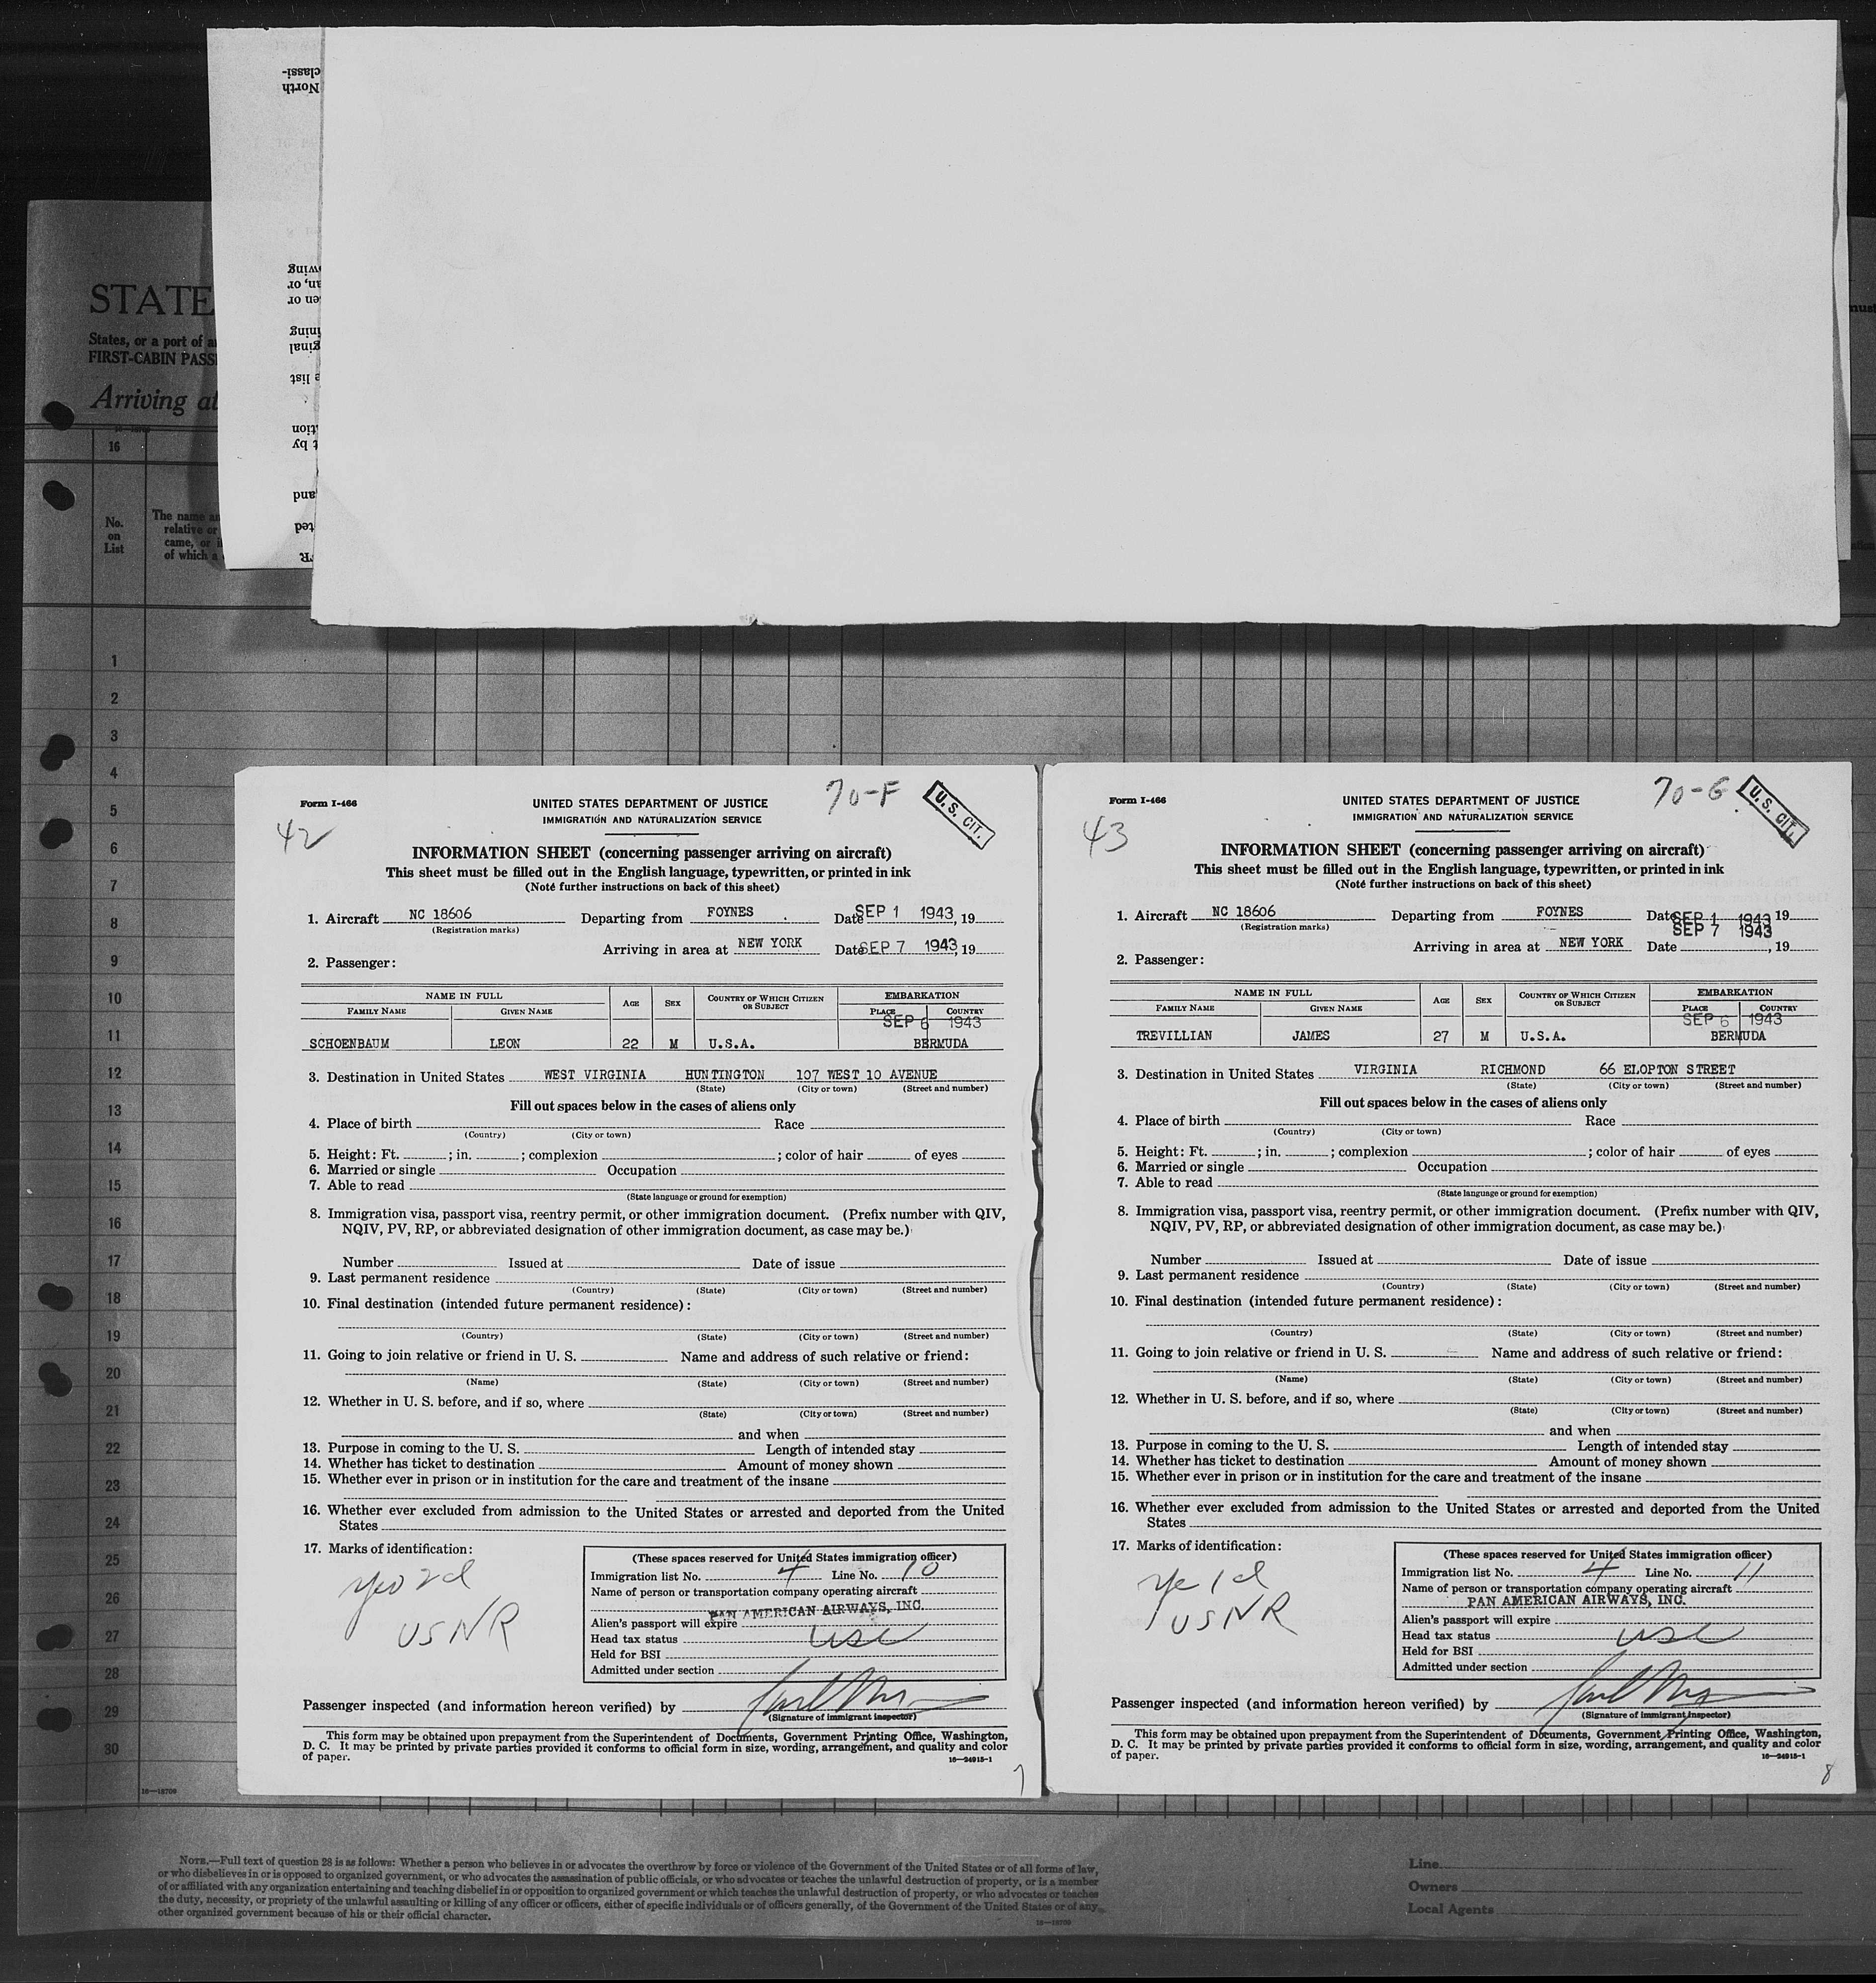 classi-
North
wing
an, or
en or
ining
ginal
e list
ation
t by
and
ted
R
STATE
States, or a port of a
FIRST-CABIN PASS
Arriving at
16
No.
on
List
The name an
relative or
came, or i
of which a
1
2
3
4
5
6
7
8
9
10
11
12
13
14
15
16
17
18
19
20
21
22
23
24
25
26
27
28
29
30
16—18709
Form I-466
42
UNITED STATES DEPARTMENT OF JUSTICE
IMMIGRATION AND NATURALIZATION SERVICE
70-F
U. S. CIT.
INFORMATION SHEET (concerning passenger arriving on aircraft)
This sheet must be filled out in the English language, typewritten, or printed in ink
(Note further instructions on back of this sheet)
1. Aircraft NC 18606 Departing from FOYNES Date SEP 1 1943, 19
(Registration marks)
Arriving in area at NEW YORK Date SEP 7 1943, 19
2. Passenger:
NAME IN FULL AGE SEX COUNTRY OF WHICH CITIZEN OR SUBJECT EMBARKATION
FAMILY NAME GIVEN NAME PLACE COUNTRY
SEP 6 1943
SCHOENBAUM LEON 22 M U.S.A. BERMUDA
3. Destination in United States WEST VIRGINIA HUNTINGTON 107 WEST 10 AVENUE
(State) (City or town) (Street and number)
Fill out spaces below in the cases of aliens only
4. Place of birth Race
(Country) (City or town)
5. Height: Ft. ; in. ; complexion ; color of hair of eyes
6. Married or single Occupation
7. Able to read
(State language or ground for exemption)
8. Immigration visa, passport visa, reentry permit, or other immigration document. (Prefix number with QIV,
NQIV, PV, RP, or abbreviated designation of other immigration document, as case may be.)
Number Issued at Date of issue
9. Last permanent residence
(Country) (State) (City or town) (Street and number)
10. Final destination (intended future permanent residence):
(Country) (State) (City or town) (Street and number)
11. Going to join relative or friend in U. S. Name and address of such relative or friend:
(Name) (State) (City or town) (Street and number)
12. Whether in U. S. before, and if so, where
(State) (City or town) (Street and number)
and when
13. Purpose in coming to the U. S. Length of intended stay
14. Whether has ticket to destination Amount of money shown
15. Whether ever in prison or in institution for the care and treatment of the insane
16. Whether ever excluded from admission to the United States or arrested and deported from the United
States
17. Marks of identification:
Yeo 2d
USNR
(These spaces reserved for United States immigration officer)
Immigration list No. 4 Line No. 10
Name of person or transportation company operating aircraft
PAN AMERICAN AIRWAYS, INC.
Alien's passport will expire
Head tax status USC
Held for BSI
Admitted under section
Passenger inspected (and information hereon verified) by
(Signature of immigrant inspector)
This form may be obtained upon prepayment from the Superintendent of Documents, Government Printing Office, Washington,
D. C. It may be printed by private parties provided it conforms to official form in size, wording, arrangement, and quality and color
of paper.
16—24915-1
7
Form I-466
43
UNITED STATES DEPARTMENT OF JUSTICE
IMMIGRATION AND NATURALIZATION SERVICE
70-G
U. S. CIT.
INFORMATION SHEET (concerning passenger arriving on aircraft)
This sheet must be filled out in the English language, typewritten, or printed in ink
(Note further instructions on back of this sheet)
1. Aircraft NC 18606 Departing from FOYNES Date SEP 1 1943 19
(Registration marks)
SEP 7 1943
Arriving in area at NEW YORK Date , 19
2. Passenger:
NAME IN FULL AGE SEX COUNTRY OF WHICH CITIZEN OR SUBJECT EMBARKATION
FAMILY NAME GIVEN NAME PLACE COUNTRY
SEP 6 1943
TREVILLIAN JAMES 27 M U.S.A. BERMUDA
3. Destination in United States VIRGINIA RICHMOND 66 ELOPTON STREET
(State) (City or town) (Street and number)
Fill out spaces below in the cases of aliens only
4. Place of birth Race
(Country) (City or town)
5. Height: Ft. ; in. ; complexion ; color of hair of eyes
6. Married or single Occupation
7. Able to read
(State language or ground for exemption)
8. Immigration visa, passport visa, reentry permit, or other immigration document. (Prefix number with QIV,
NQIV, PV, RP, or abbreviated designation of other immigration document, as case may be.)
Number Issued at Date of issue
9. Last permanent residence
(Country) (State) (City or town) (Street and number)
10. Final destination (intended future permanent residence):
(Country) (State) (City or town) (Street and number)
11. Going to join relative or friend in U. S. Name and address of such relative or friend:
(Name) (State) (City or town) (Street and number)
12. Whether in U. S. before, and if so, where
(State) (City or town) (Street and number)
and when
13. Purpose in coming to the U. S. Length of intended stay
14. Whether has ticket to destination Amount of money shown
15. Whether ever in prison or in institution for the care and treatment of the insane
16. Whether ever excluded from admission to the United States or arrested and deported from the United
States
17. Marks of identification:
1d
USNR
(These spaces reserved for United States immigration officer)
Immigration list No. 4 Line No. 11
Name of person or transportation company operating aircraft
PAN AMERICAN AIRWAYS, INC.
Alien's passport will expire
Head tax status USC
Held for BSI
Admitted under section
Passenger inspected (and information hereon verified) by
(Signature of immigrant inspector)
This form may be obtained upon prepayment from the Superintendent of Documents, Government Printing Office, Washington,
D. C. It may be printed by private parties provided it conforms to official form in size, wording, arrangement, and quality and color
of paper.
16—24915-1
8
NOTE.—Full text of question 28 is as follows: Whether a person who believes in or advocates the overthrow by force or violence of the Government of the United States or of all forms of law,
or who disbelieves in or is opposed to organized government, or who advocates the assassination of public officials, or who advocates or teaches the unlawful destruction of property, or is a member
of or affiliated with any organization entertaining and teaching disbelief in or opposition to organized government or which teaches the unlawful destruction of property, or who advocates or teaches
the duty, necessity, or propriety of the unlawful assaulting or killing of any officer or officers, either of specific individuals or of officers generally, of the Government of the United States or of any
other organized government because of his or their official character.
16—18709
Line
Owners
Local Agents